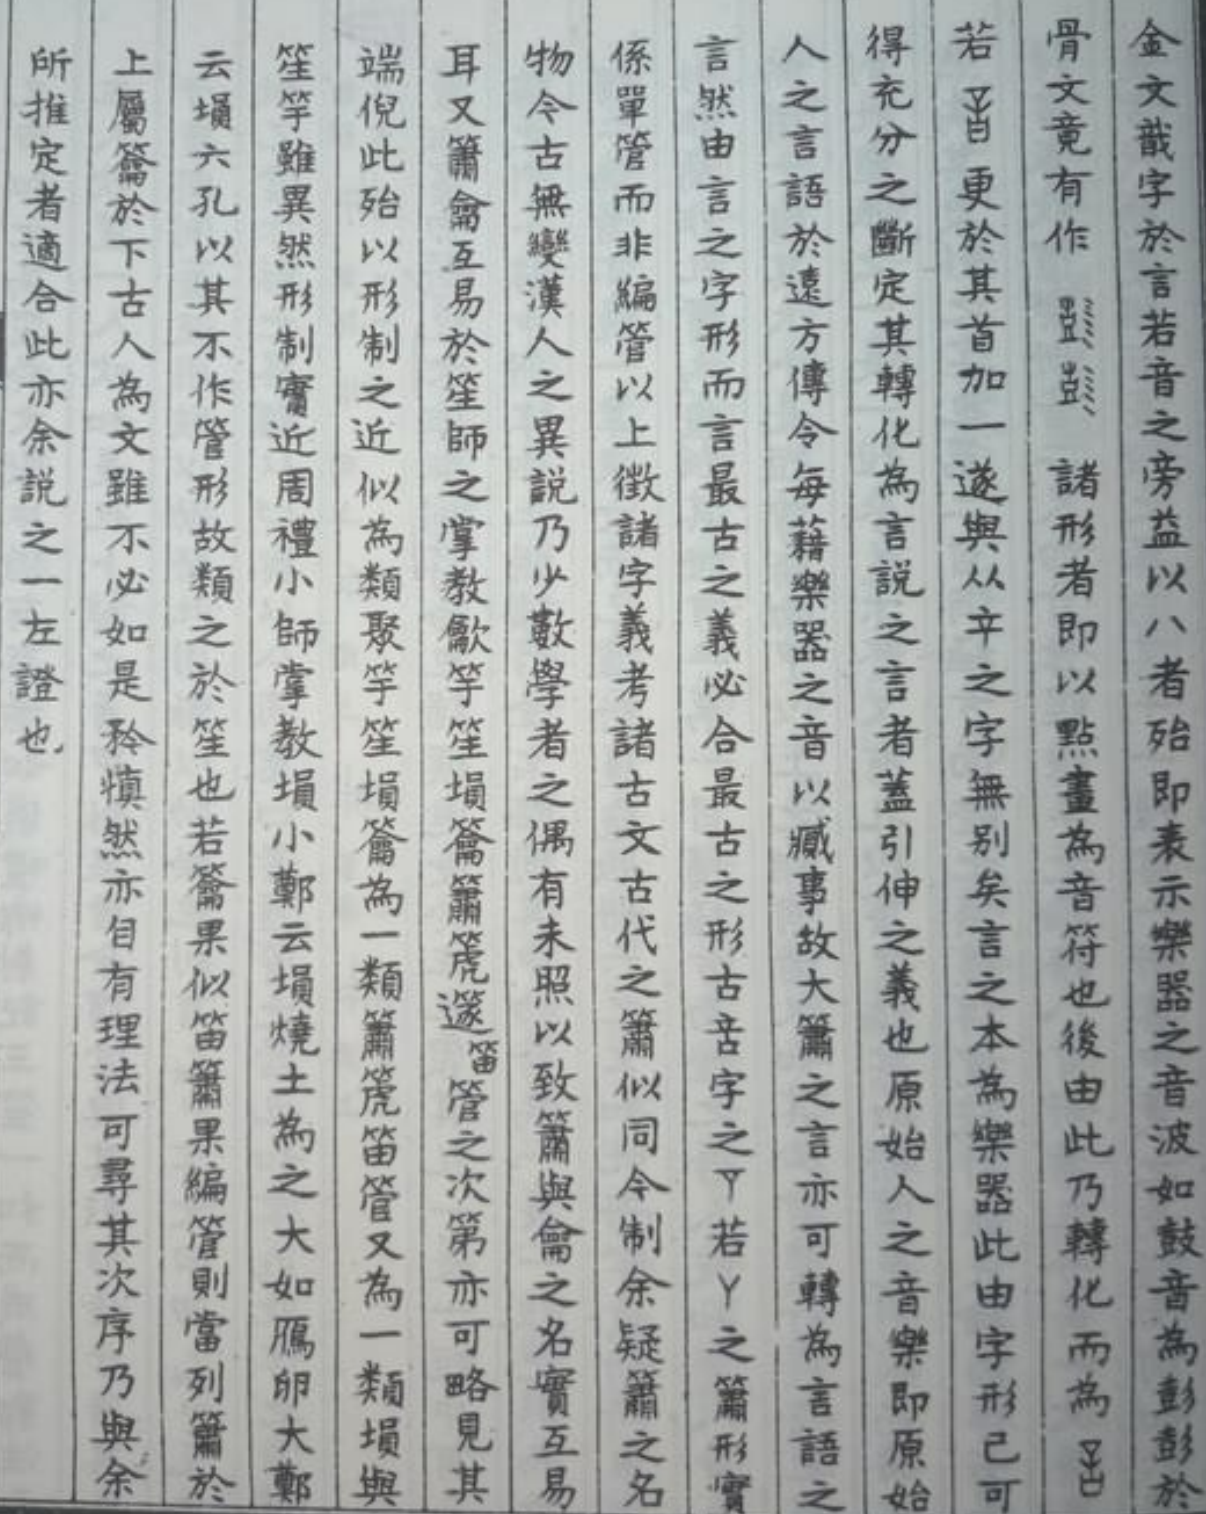 金文戠字於言若音之旁益以八者殆即表示樂器之音波如鼓音為彭彭於
骨文竟有作諸形者即以點畫為音符也後由此乃轉化而為
若更於其首加一遂與从辛之字無別矣言之本為樂器此由字形已可
得充分之斷定其轉化為言説之言者蓋引伸之義也原始人之音樂即原始
人之言語於遠方傳令每藉樂器之音以臧事故大簫之言亦可轉為言語之
言然由言之字形而言最古之義必合最古之形古言字之丫若丫之簫形實
係單管而非編管以上徵諸字義考諸古文古代之簫似同今制余疑簫之名
物令古無變漢人之異説乃少數學者之偶有未照以致簫與龠之名實互易
耳又簫龠互易於笙師之掌教龡竽笙塤籥簫篪篴笛管之次第亦可略見其
端倪此殆以形制之近似為類聚竽笙塤籥為一類簫篪笛管又為一類塤與
笙竽雖異然形制實近周禮小師掌教塤小鄭云塤燒土為之大如鴈卵大鄭
云塤六孔以其不作管形故類之於笙也若籥果似笛簫果編管則當列簫於
上屬籥於下古人為文雖不必如是矜慎然亦自有理法可尋其次序乃與余
所推定者適合此亦余説之一左證也